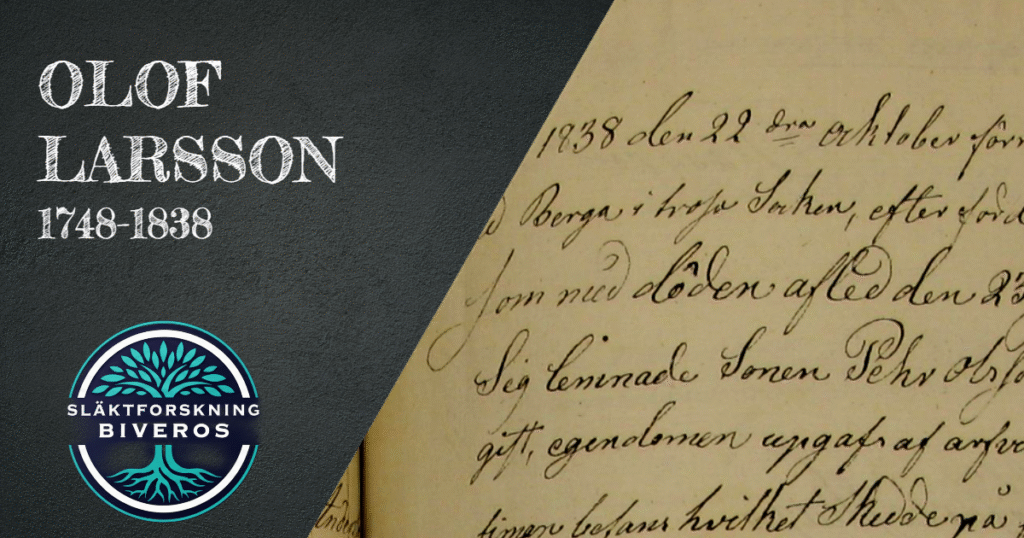 OLOF
LARSSON
1748-1838
SLÄKTFORSKNING
BIVEROS
1838 den 22 dra oktober förr
Berga i trosa Socken, efter
som med döden afled den 23
Sig lemnade Sonen Pehr olsso
gift, egendomen upgafs af arfva
timen befans hvilket Skedde på